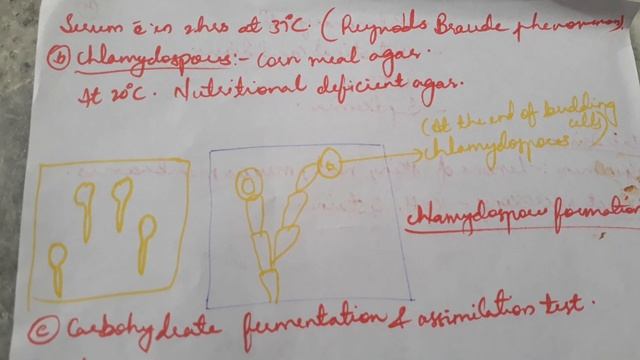 Serum c̄ in 2hrs at 37°C. (Reynolds Braude phenomenon)
(b) Chlamydospores:- Corn meal agar.
At 20°C. Nutritional deficient agar.
(At the end of budding
cells)
chlamydospores
chlamydospore formation
(c) Carbohydrate fermentation & assimilation test.